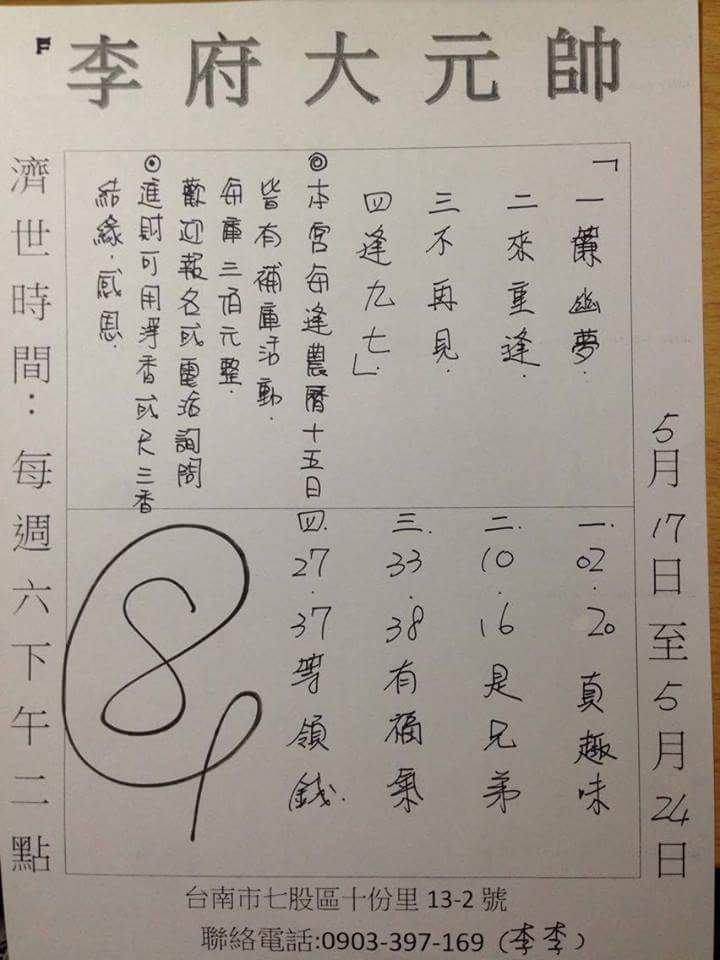 李府大元帥
5月17日至5月24日
「一簾幽夢.
二來重逢.
三不再見.
四逢九七.」
◎本宮每逢農曆十五日
皆有補庫活動.
每庫三佰元整.
歡迎報名或電話詢問
⊙進財可用淨香或尺三香
結緣.感恩.
一.02.20真趣味
二.10.16是兄弟
三.33.38有福氣
四.27.37等領錢.
濟世時間:每週六下午二點
台南市七股區十份里 13-2 號
聯絡電話:0903-397-169(李李)